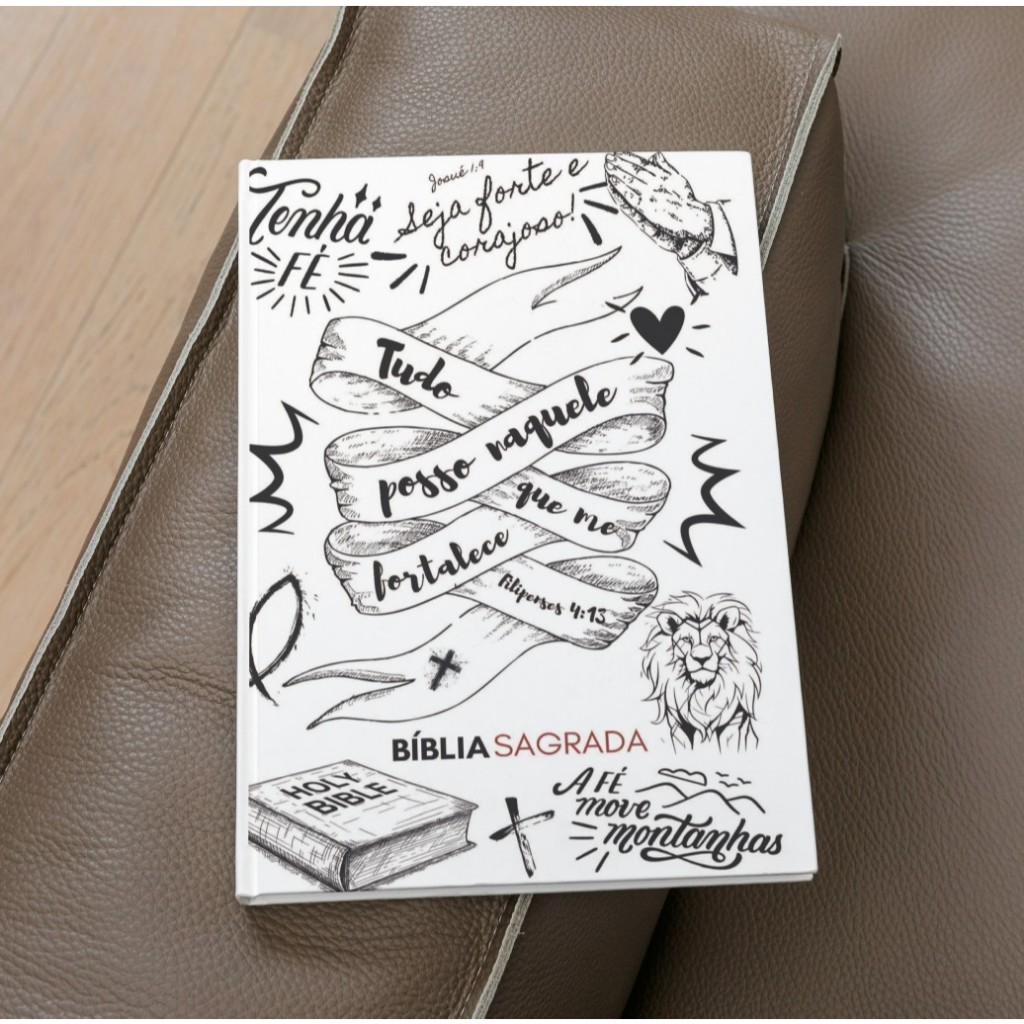 Tenha
FÉ
Josué 1:9
Seja forte e
corajoso!
Tudo
posso naquele
que me
fortalece
Filipenses 4:13
BÍBLIA SAGRADA
HOLY
BIBLE
A FÉ
move
montanhas